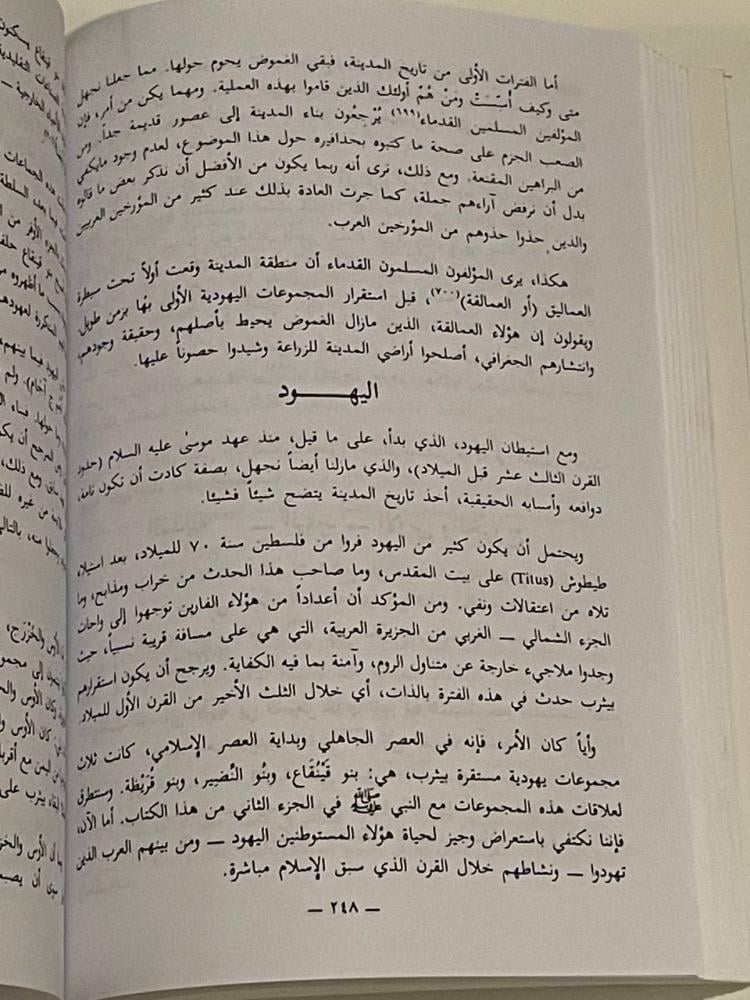 أما الفترات الأولى من تاريخ المدينة، فبقي الغموض يحوم حولها. مما جعلنا نجهل
متى وكيف أُسِّسَتْ ومَنْ هُمْ أولئك الذين قاموا بهذه العملية. ومهما يكن من أمر، فإن
المؤلفين المسلمين القدماء(٦٩٩) يُرْجِعُون بناء المدينة إلى عصور قديمة جداً. ومن
الصعب الجزم على صحة ما كتبوه بحذافيره حول هذا الموضوع، لعدم وجود مايكفي
من البراهين المقنعة. ومع ذلك، نرى أنه ربما يكون من الأفضل أن نذكر بعض ما قالوه
بدل أن نرفض آراءهم جملة، كما جرت العادة بذلك عند كثير من المؤرخين الغربيين
والذين حذوا حذوهم من المؤرخين العرب.
هكذا، يرى المؤلفون المسلمون القدماء أن منطقة المدينة وقعت أولاً تحت سيطرة
العماليق (أو العمالقة)(٧٠٠)، قبل استقرار المجموعات اليهودية الأولى بها بزمن طويل.
ويقولون إن هؤلاء العمالقة، الذين مازال الغموض يحيط بأصلهم، وحقيقة وجودهم،
وانتشارهم الجغرافي، أصلحوا أراضي المدينة للزراعة وشيدوا حصوناً عليها.
اليهـــــود
ومع استيطان اليهود، الذي بدأ، على ما قيل، منذ عهد موسىٰ عليه السلام (حدود
القرن الثالث عشر قبل الميلاد)، والذي مازلنا أيضاً نجهل، بصفة كادت أن تكون تامة،
دوافعه وأسبابه الحقيقية، أخذ تاريخ المدينة يتضح شيئاً فشيئا.
ويحتمل أن يكون كثير من اليهود فروا من فلسطين سنة ٧٠ للميلاد، بعد استيلاء
طيطوش (Titus) على بيت المقدس، وما صاحب هذا الحدث من خراب ومذابح، وما
تلاه من اعتقالات ونفي. ومن المؤكد أن أعداداً من هؤلاء الفارين توجهوا إلى واحات
الجزء الشمالي — الغربي من الجزيرة العربية، التي هي على مسافة قريبة نسبياً، حيث
وجدوا ملاجيء خارجة عن متناول الروم، وآمنة بما فيه الكفاية. ويرجح أن يكون استقرارهم
بيثرب حدث في هذه الفترة بالذات، أي خلال الثلث الأخير من القرن الأول للميلاد.
وأياً كان الأمر، فإنه في العصر الجاهلي وبداية العصر الإسلامي، كانت ثلاث
مجموعات يهودية مستقرة بيثرب، هي: بنو قَيْنُقَاع، وبنُو النُّضِير، وبنو قُرَيْظة. وسنتطرق
لعلاقات هذه المجموعات مع النبي ﷺ في الجزء الثاني من هذا الكتاب. أما الآن،
فإننا نكتفي باستعراض وجيز لحياة هؤلاء المستوطنين اليهود — ومن بينهم العرب الذين
تهودوا — ونشاطهم خلال القرن الذي سبق الإسلام مباشرة.
— ٢٤٨ —